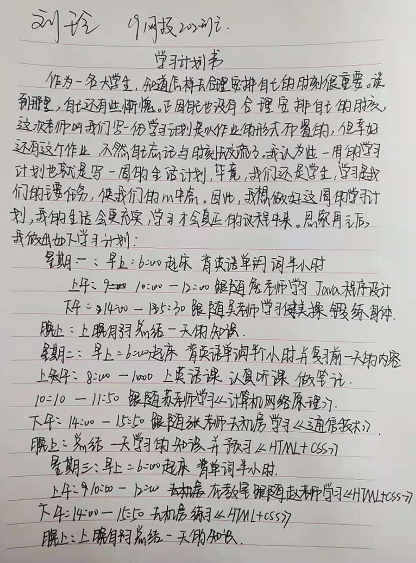 刘玲 19网报202刘玲
学习计划书
作为一名大学生,知道怎样去合理安排自己的时刻很重要。谈
到那里,自己还有些惭愧。正因自己也没有合理安排自己的时刻,
这次老师叫我们写一份学习计划是以作业的形式布置的,但幸好
还有这个作业,不然自己忘记与时刻放流了。我认为些一周的学习
计划也就是写一周的生活计划,毕竟,我们还是学生,学习是我
们的主要任务,使我们的中点。因此,我想做好这周的学习计
划,我的生活会更充实,学习才会真正的议程中来。思索再三后,
我做出如下学习计划:
星期一:早上:6:00起床 背英语单词半小时
上午: 10:00—12:00 跟随老师学习 Java程序设计
下午:14:00—15:30 跟随吴老师学习健美操 锻练身体.
晚上:上晚自习总结一天的知识.
星期二:早上:6:00起床 背英语单词半个小时并复习前一天的内容
上午:8:00—1000 上英语课 认真听课 做笔记.
10:10—11:50 跟随苏老师学习《计算机网络原理》.
下午:14:00—15:50 跟随张老师去机房学习《通信技术》.
晚上:总结一天学习的知识并预习《HTML+CSS》
星期三:早上:6:00起床 背单词半小时.
上午:10:00—12:00 在教室跟随赵老师学习《HTML+CSS》
下午:14:00—15:50 去机房练习《HTML+CSS》
晚上:上晚自习总结一天的知识.